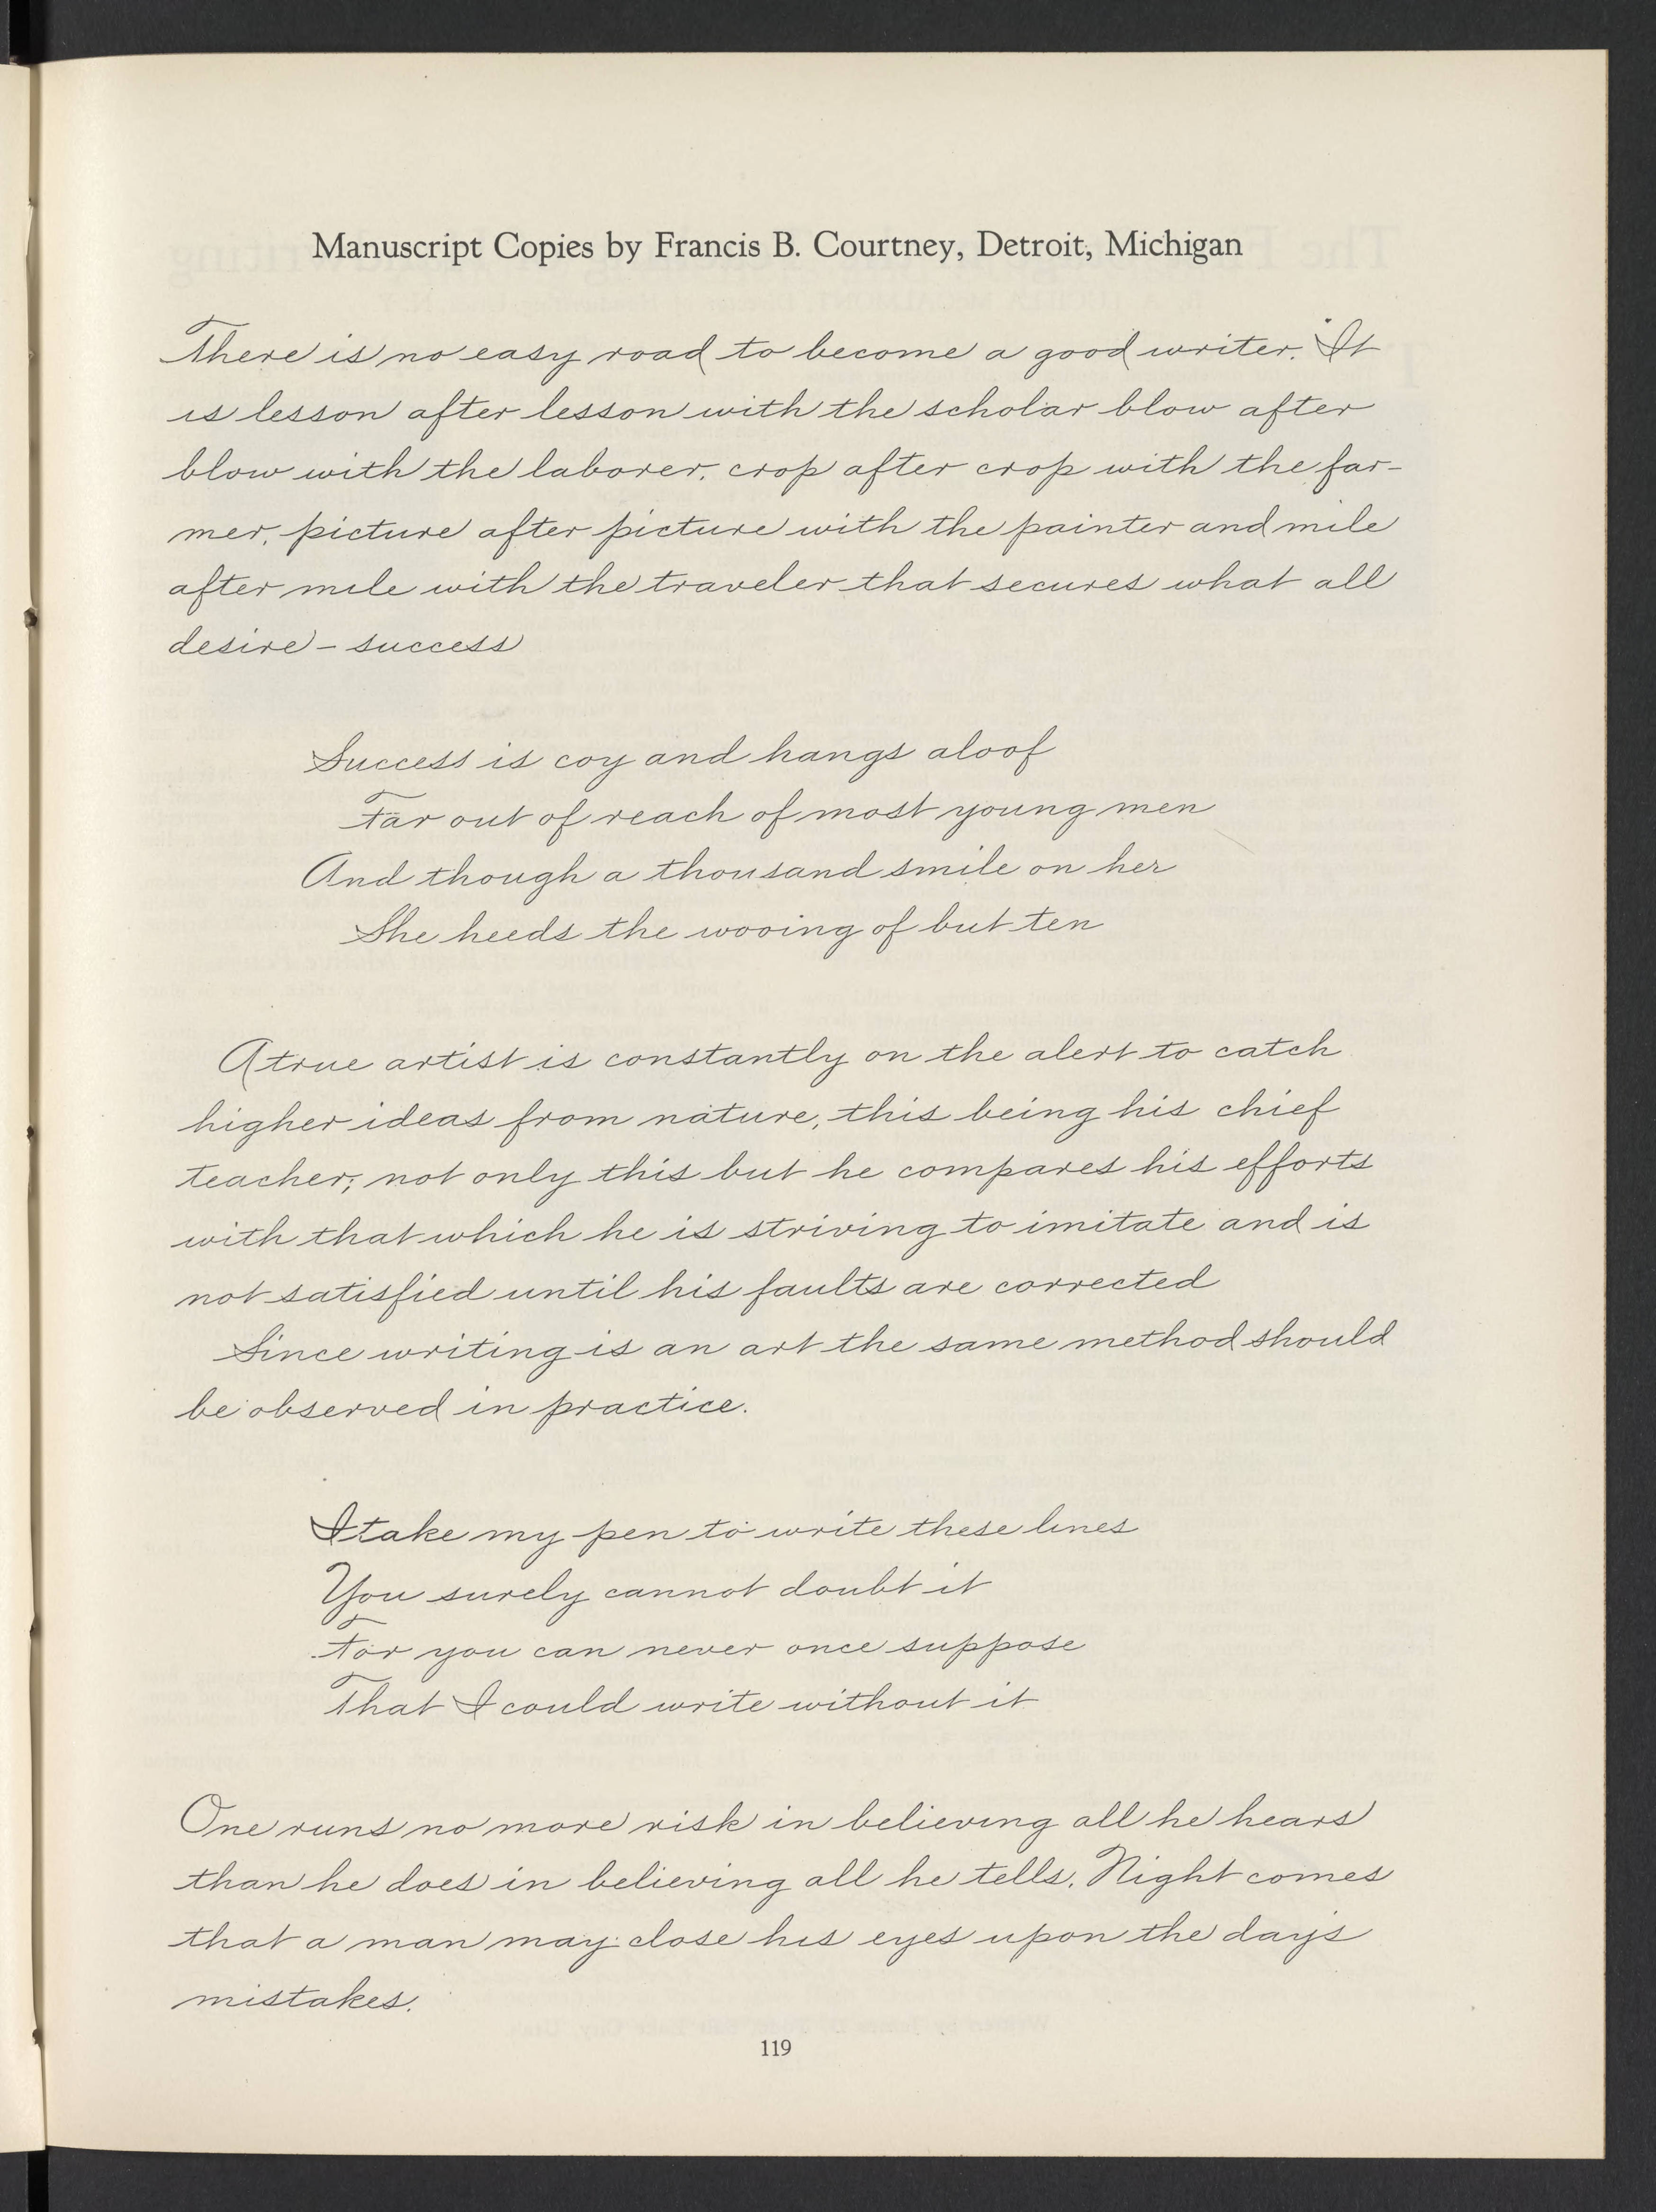 Manuscript Copies by Francis B. Courtney, Detroit, Michigan
There is no easy road to become a good writer. It
is lesson after lesson with the scholar blow after
blow with the laborer, crop after crop with the far-
mer, picture after picture with the painter and mile
after mile with the traveler that secures what all
desire - success
Success is coy and hangs aloof
Far out of reach of most young men
And though a thousand smile on her
She heeds the wooing of but ten
A true artist is constantly on the alert to catch
higher ideas from nature, this being his chief
teacher; not only this but he compares his efforts
with that which he is striving to imitate and is
not satisfied until his faults are corrected
Since writing is an art the same method should
be observed in practice.
I take my pen to write these lines
You surely cannot doubt it
For you can never once suppose
That I could write without it
One runs no more risk in believing all he hears
than he does in believing all he tells. Night comes
that a man may close his eyes upon the day's
mistakes.
119